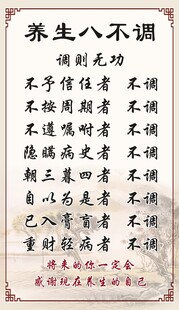 养生八不调
调则无功
不予信任者 不调
不按周期者 不调
不遵嘱咐者 不调
隐瞒病史者 不调
朝三暮四者 不调
自以为是者 不调
已入膏肓者 不调
重财轻病者 不调
将来的你一定会
感谢现在养生的自己